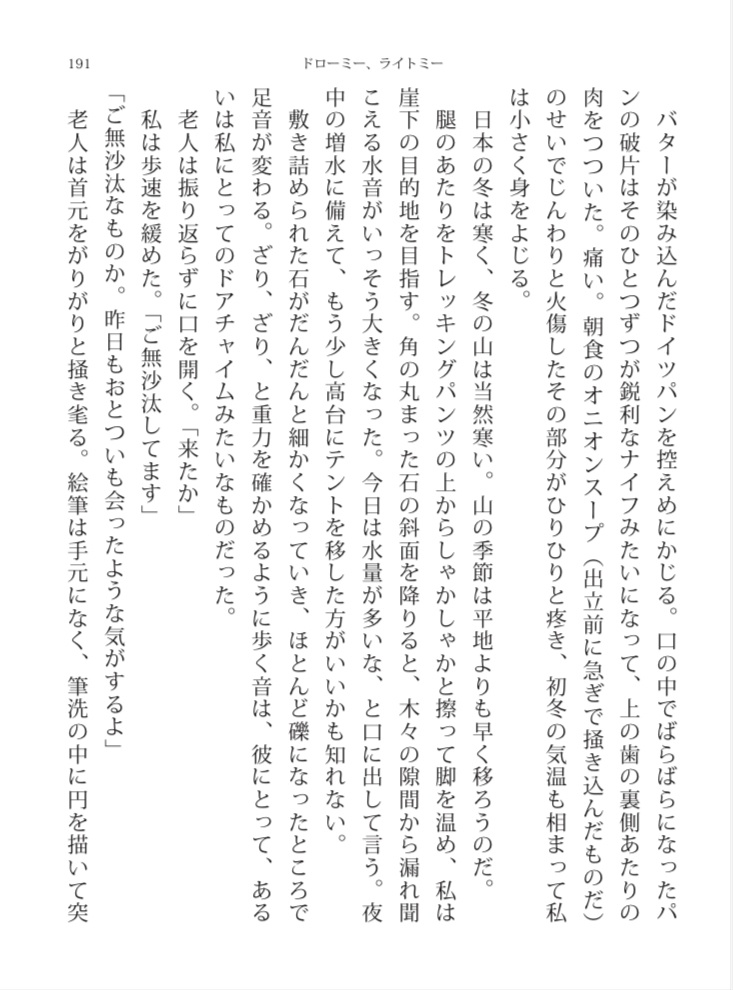 191
ドローミー、ライトミー
　バターが染み込んだドイツパンを控えめにかじる。口の中でばらばらになったパ
ンの破片はそのひとつずつが鋭利なナイフみたいになって、上の歯の裏側あたりの
肉をつついた。痛い。朝食のオニオンスープ（出立前に急ぎで掻き込んだものだ）
のせいでじんわりと火傷したその部分がひりひりと疼き、初冬の気温も相まって私
は小さく身をよじる。
　日本の冬は寒く、冬の山は当然寒い。山の季節は平地よりも早く移ろうのだ。
　腿のあたりをトレッキングパンツの上からしゃかしゃかと擦って脚を温め、私は
崖下の目的地を目指す。角の丸まった石の斜面を降りると、木々の隙間から漏れ聞
こえる水音がいっそう大きくなった。今日は水量が多いな、と口に出して言う。夜
中の増水に備えて、もう少し高台にテントを移した方がいいかも知れない。
　敷き詰められた石がだんだんと細かくなっていき、ほとんど礫になったところで
足音が変わる。ざり、ざり、と重力を確かめるように歩く音は、彼にとって、ある
いは私にとってのドアチャイムみたいなものだった。
　老人は振り返らずに口を開く。「来たか」
　私は歩速を緩めた。「ご無沙汰してます」
「ご無沙汰なものか。昨日もおとついも会ったような気がするよ」
　老人は首元をがりがりと掻き毟る。絵筆は手元になく、筆洗の中に円を描いて突